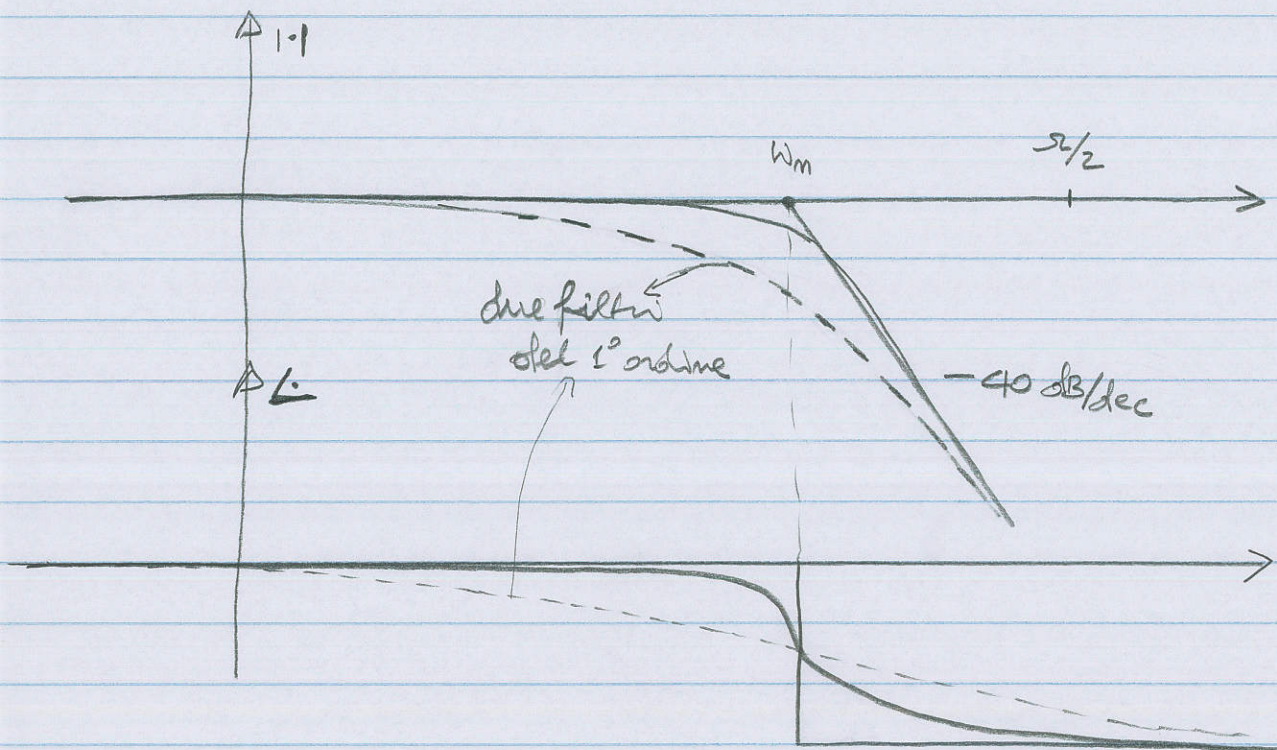 |·|
ωn
Ω/2
due filtri
del 1° ordine
-40 dB/dec
∠·